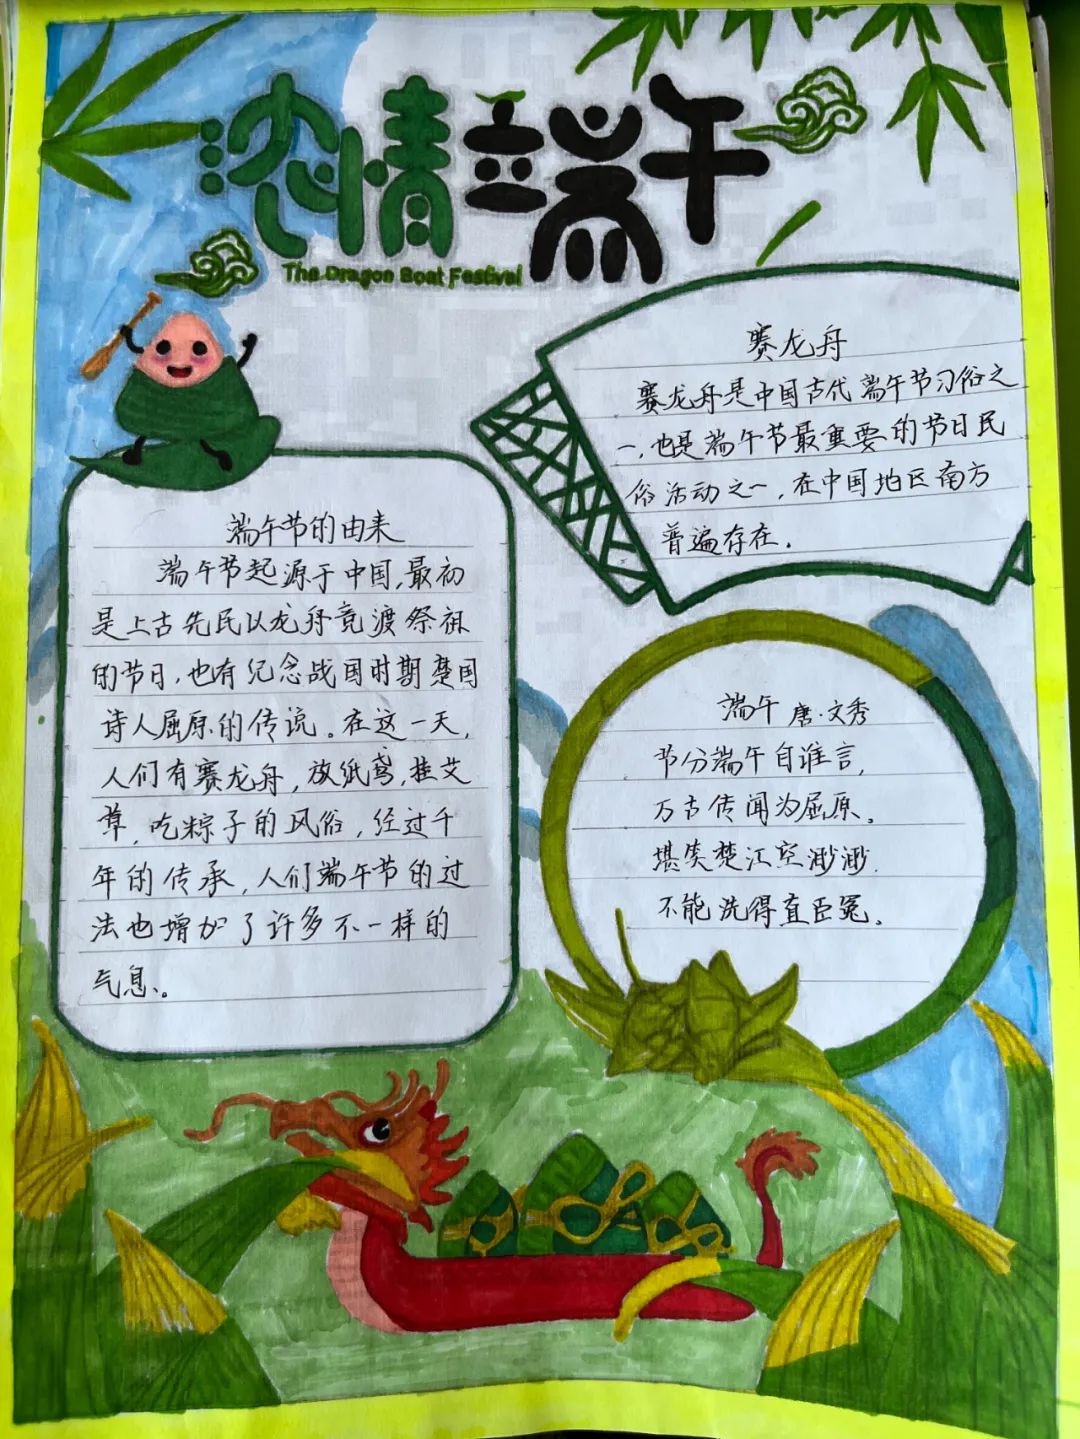 浓情端午
The Dragon Boat Festival
赛龙舟
赛龙舟是中国古代端午节习俗之
一,也是端午节最重要的节日民
俗活动之一,在中国地区南方
普遍存在.
端午节的由来
端午节起源于中国,最初
是上古先民以龙舟竞渡祭祖
的节日,也有纪念战国时期楚国
诗人屈原的传说。在这一天,
人们有赛龙舟,放纸鸢,挂艾
草,吃粽子的风俗,经过千
年的传承,人们端午节的过
法也增加了许多不一样的
气息、。
端午 唐·文秀
节分端午自谁言,
万古传闻为屈原。
堪笑楚江空渺渺.
不能洗得直臣冤。